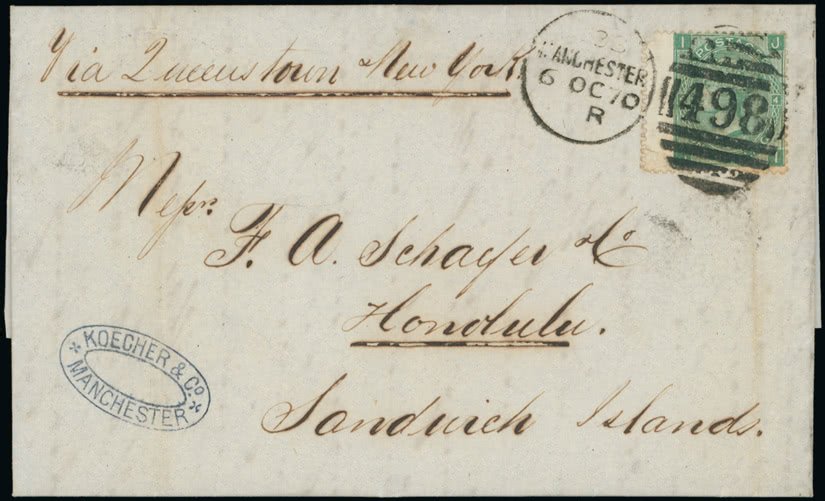 Via Queenstown & New York
MANCHESTER
6 OC 70
R
498
I J
POSTAGE
4
J I
Messrs.
F. A. Schaefer & Co
Honolulu.
Sandwich Islands.
KOECHER & Co.
MANCHESTER